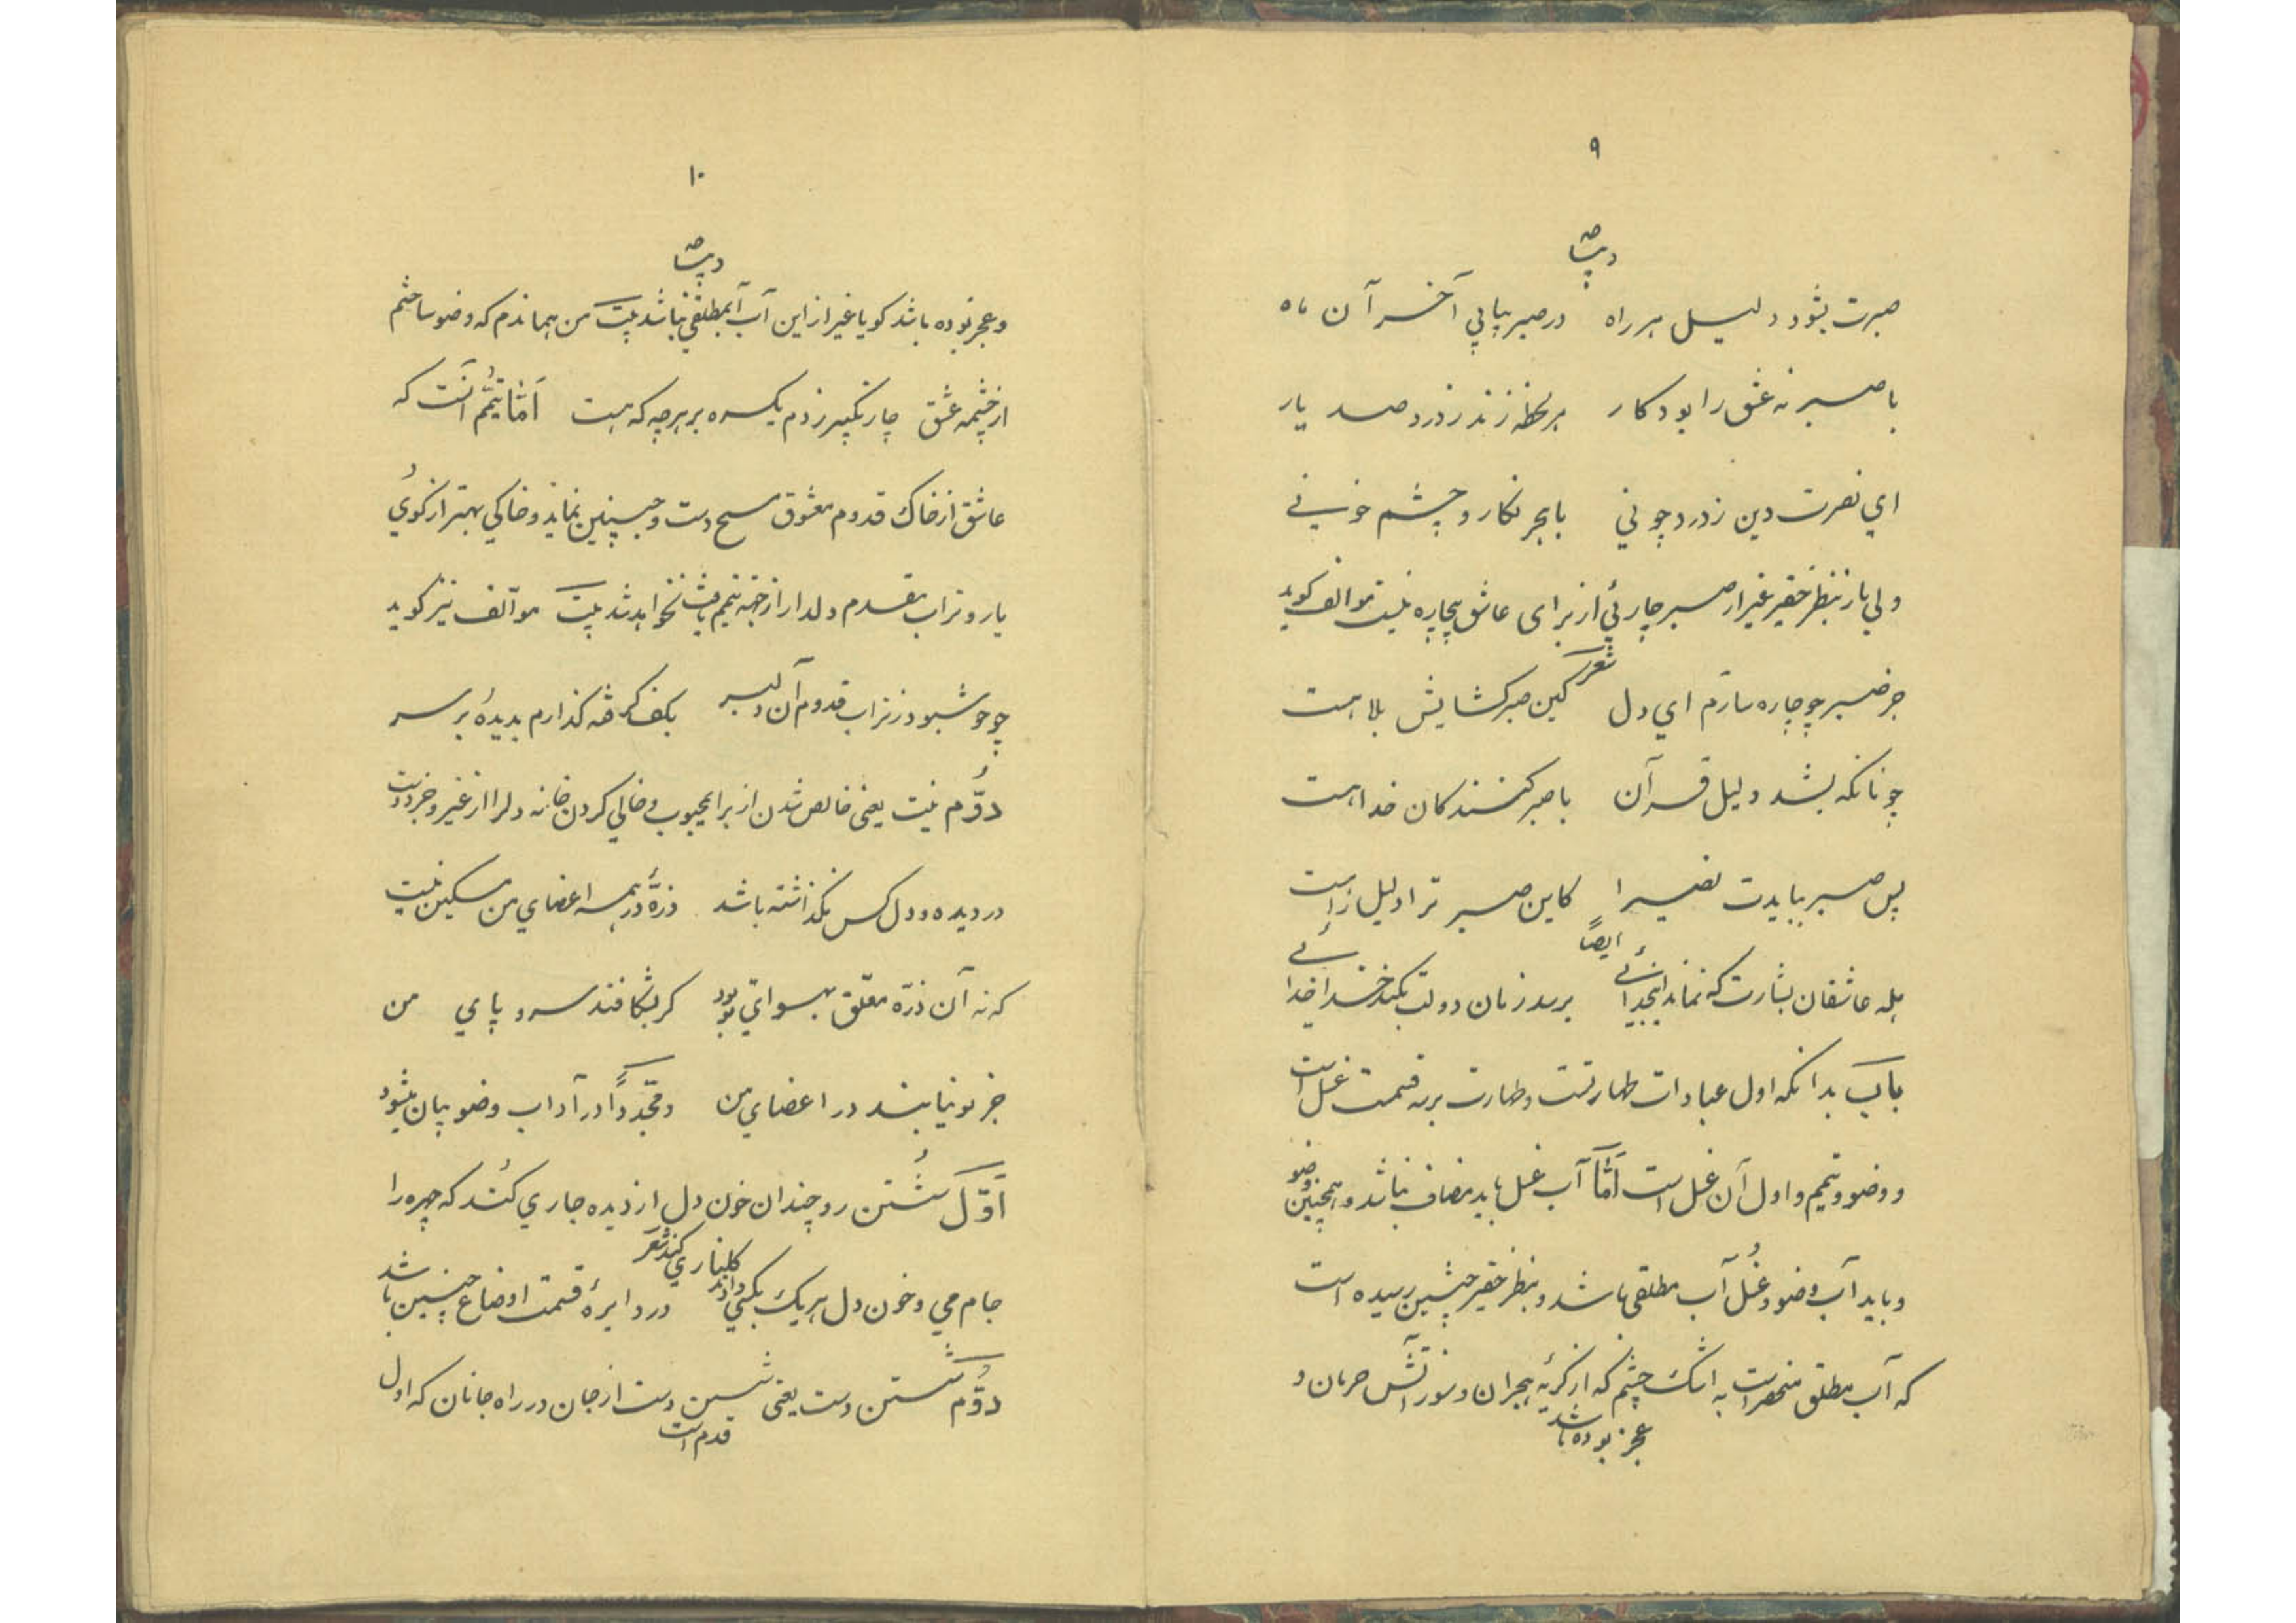 ۹
صبرت بشود دلیل هر راه در صبر بیابی آخر آن ماه
با صبر نه عشق را بود کار هر لحظه زند ز درد صد یار
ای نصرت دین ز درد چونی با هجر نکار و چشم خونی
ولی باز بنظر حقیر غیر از صبر چارئی از برای عاشق بیچاره نیست موالف کوید
شعر
جز صبر چو چاره سازم ای دل کین صبر کشایش بلا هست
چونانکه بشد دلیل قرآن با صبر کنندکان خدا هست
پس صبر ببایدت نصیرا کاین صبر ترا دلیل راست
ایضاً
هله عاشقان بشارت که نماند این جدائی برسد زمان دولت بکند خدا خدائی
باب بدانکه اول عبادات طهارتست و طهارت بر سه قسمت غسل است
و وضو و تیمم و اول آن غسل است امّا آب غسل باید مضاف نباشد و همچنین وضو
و باید آب وضو و غُسل آب مطلقی باشد و بنظر حقیر چنین رسیده است
که آب مطلق منحصر است به اشک چشم که از کریهٔ هجران و سوز آتش حرمان و
عجز بوده باشد
۱۰
و عجز بوده باشد کویا غیر از این آب آبمطلقی نباشد بیت من هماندم که وضو ساختم
از چشمه عشق چار تکبیر زدم یکسره بر هرچه که هست امّا تیمُّم آنست که
عاشق از خاک قدوم معشوق مسح دست و جبین نماید و خاکی بهتر از کوی
یار و تراب مقدم دلدار از جهة تیمم یافت نخواهد شد بیت موآلف نیز کوید
چو خوش بود ز تراب قدوم آن دلبر بکف کرفته کذارم بدیدهٔ بر سر
دوُّم نیت یعنی خالص شدن از برای محبوب و خالی کردن خانه دلرا از غیر و جز دوست
در دیده و دل کس نکذاشته باشد ذرّهٔ در همه اعضای من مسکین نیست
که نه آن ذرّه معلّق بهوای تو بود کر بشکافند سر و پای من
جز تو نیابند در اعضای من و مجّدداً در آداب وضو بیان میشود
اَوّل شُستن رو چندان خون دل از دیده جاری کُند که چهره را
کلناری کند شعر
جام می و خون دل هر یک بکسی دادند در دایرهٔ قسمت اوضاع چنین باشد
دوُّم شستن دست یعنی شستن دست از جان در راه جانان که اول
قدم است